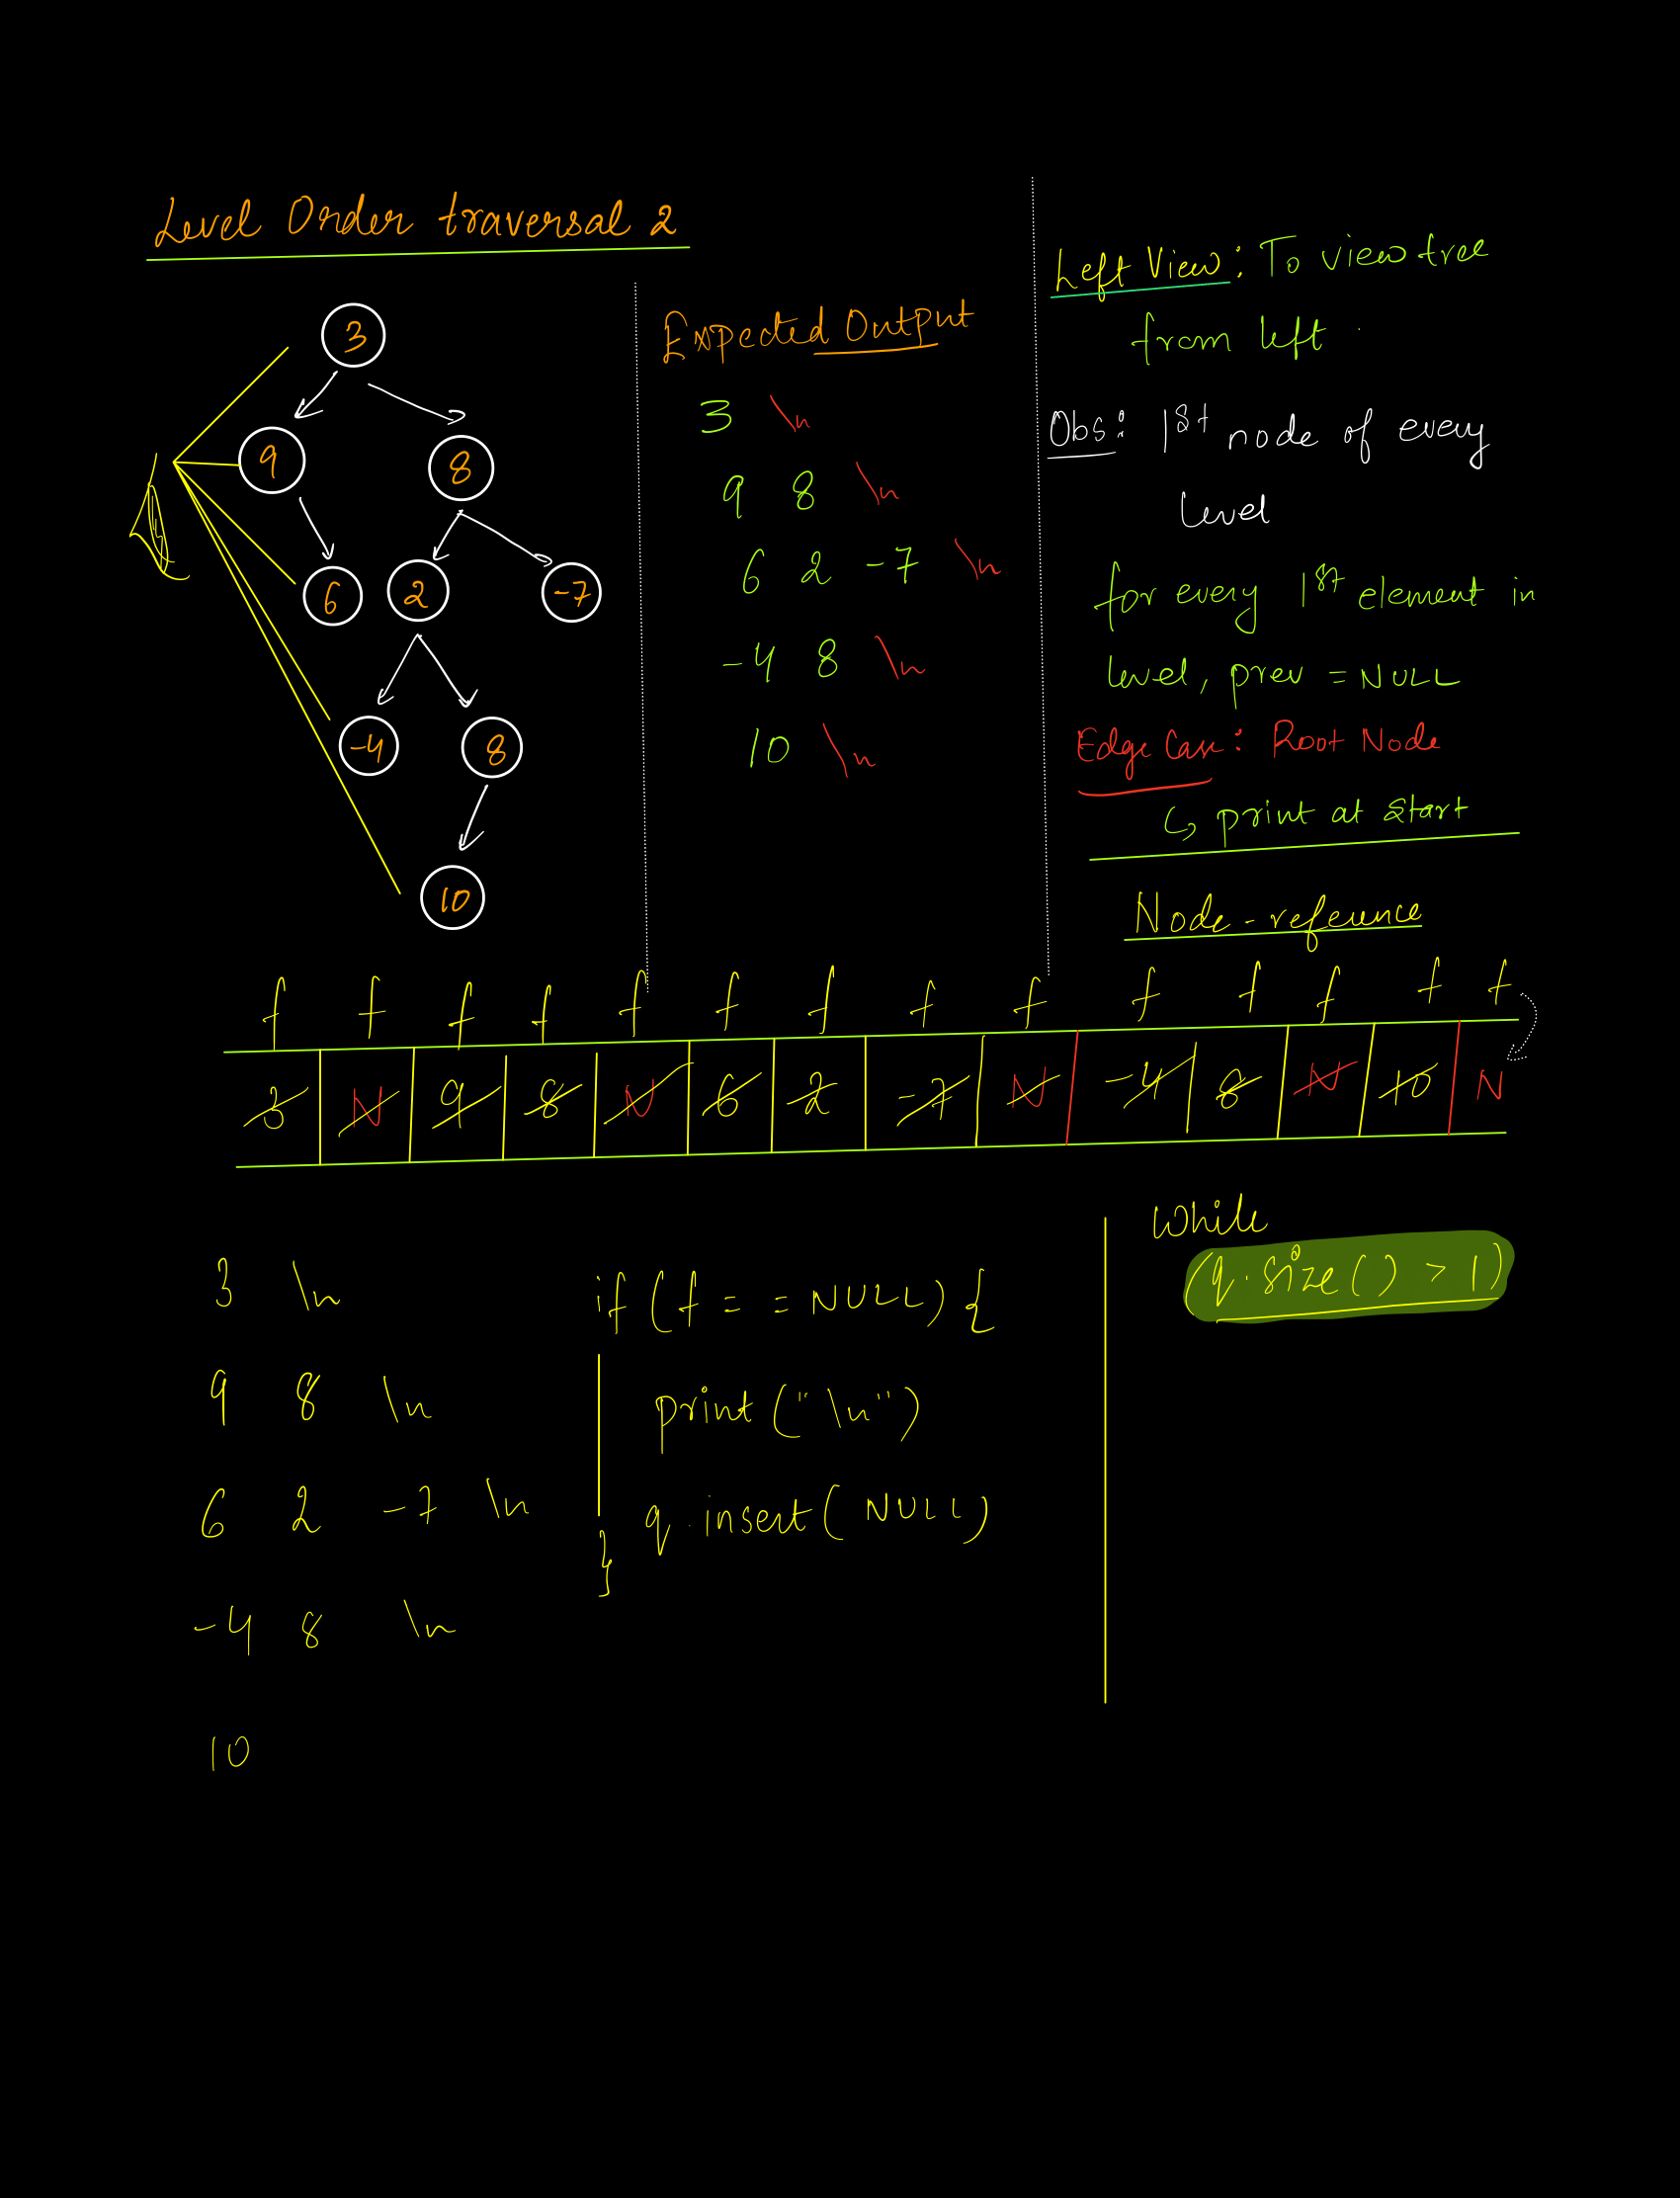 Level Order traversal 2
3
9 8
6 2 -7
-4 8
10
Expected Output
3 \n
9 8 \n
6 2 -7 \n
-4 8 \n
10 \n
Left View: To view tree
from left
Obs: 1st node of every
level
for every 1st element in
level, prev = NULL
Edge Case: Root Node
↳ print at start
Node-reference
f f f f f f f f f f f f f f
3 N 9 8 N 6 2 -7 N -4 8 N 10 N
3 \n
9 8 \n
6 2 -7 \n
-4 8 \n
10
if (f == NULL) {
print ("\n")
q.insert( NULL)
}
While
(q.size() > 1)